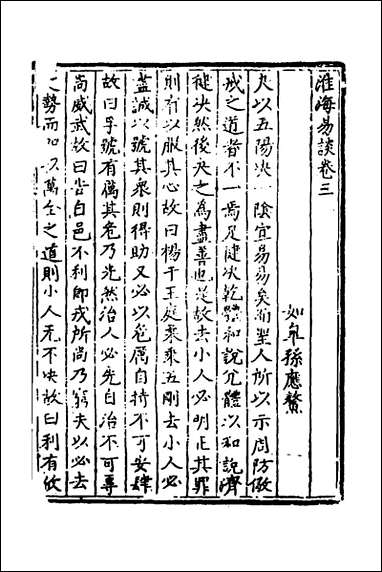 淮海易談卷三
如皐孫應鰲
夬以五陽決一陰宜易易矣而聖人所以示周防儆
戒之道者不一焉夫健決乾體和說兌體以和說濟
健決然後決之為盡善也是故去小人必明正其罪
則有以服其心故曰楊于王庭柔乘五剛去小人必
盡誠以號其衆則得助又必以危厲自持不可安肆
故曰孚號有厲其危乃光然治人必先自治不可專
尚威武故曰告自邑不利即戎所尚乃窮夫以必去
之勢而加以萬全之道則小人无不決故曰利有攸